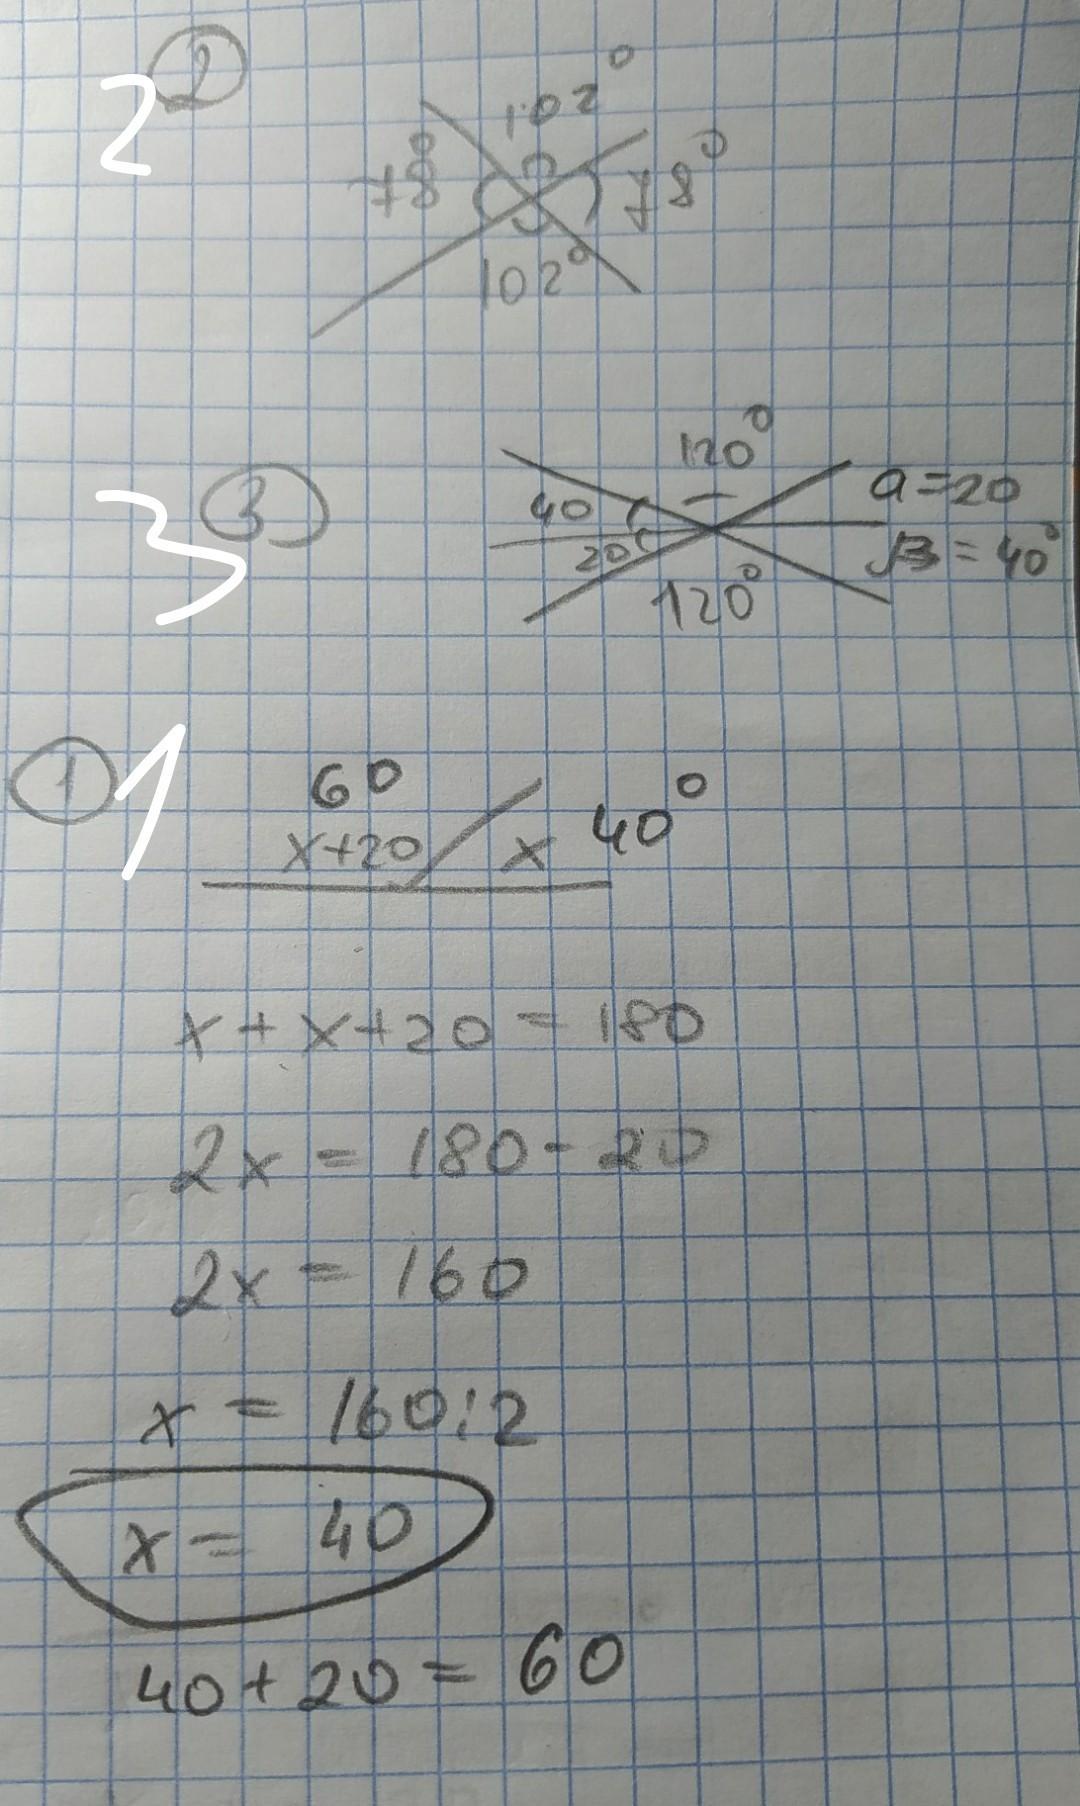 2 2
102°
78° 78°
102°
3 3
120°
40 a=20
20 β=40°
120°
1 1
60
x+20 x 40°
x+x+20=180
2x = 180-20
2x = 160
x = 160:2
x = 40
40+20 = 60